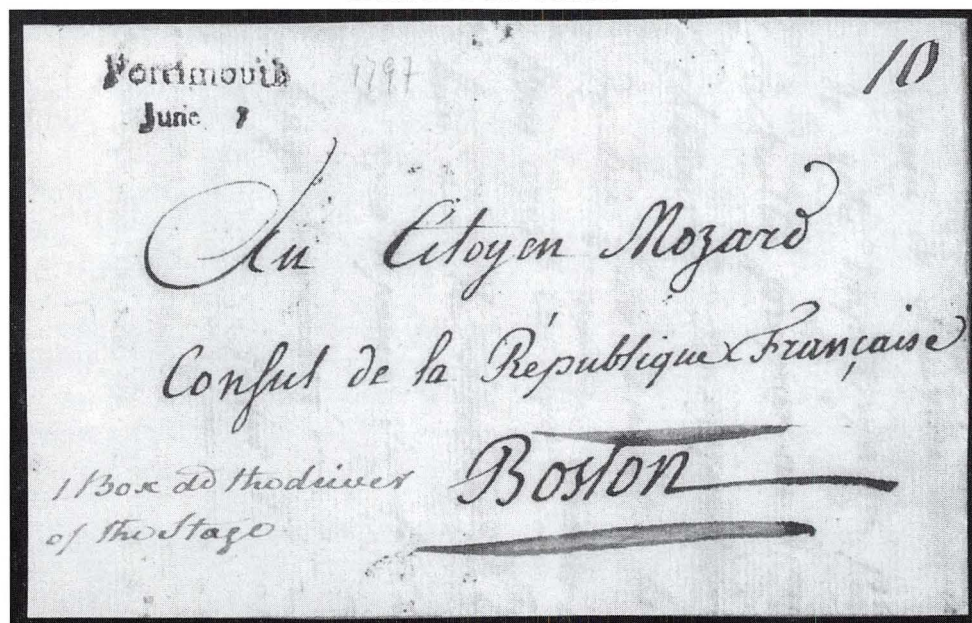 Portsmouth 1797 10
June 7
Au Citoyen Mozard
Consul de la République Française
Boston
1 Box dd the driver
of the Stage